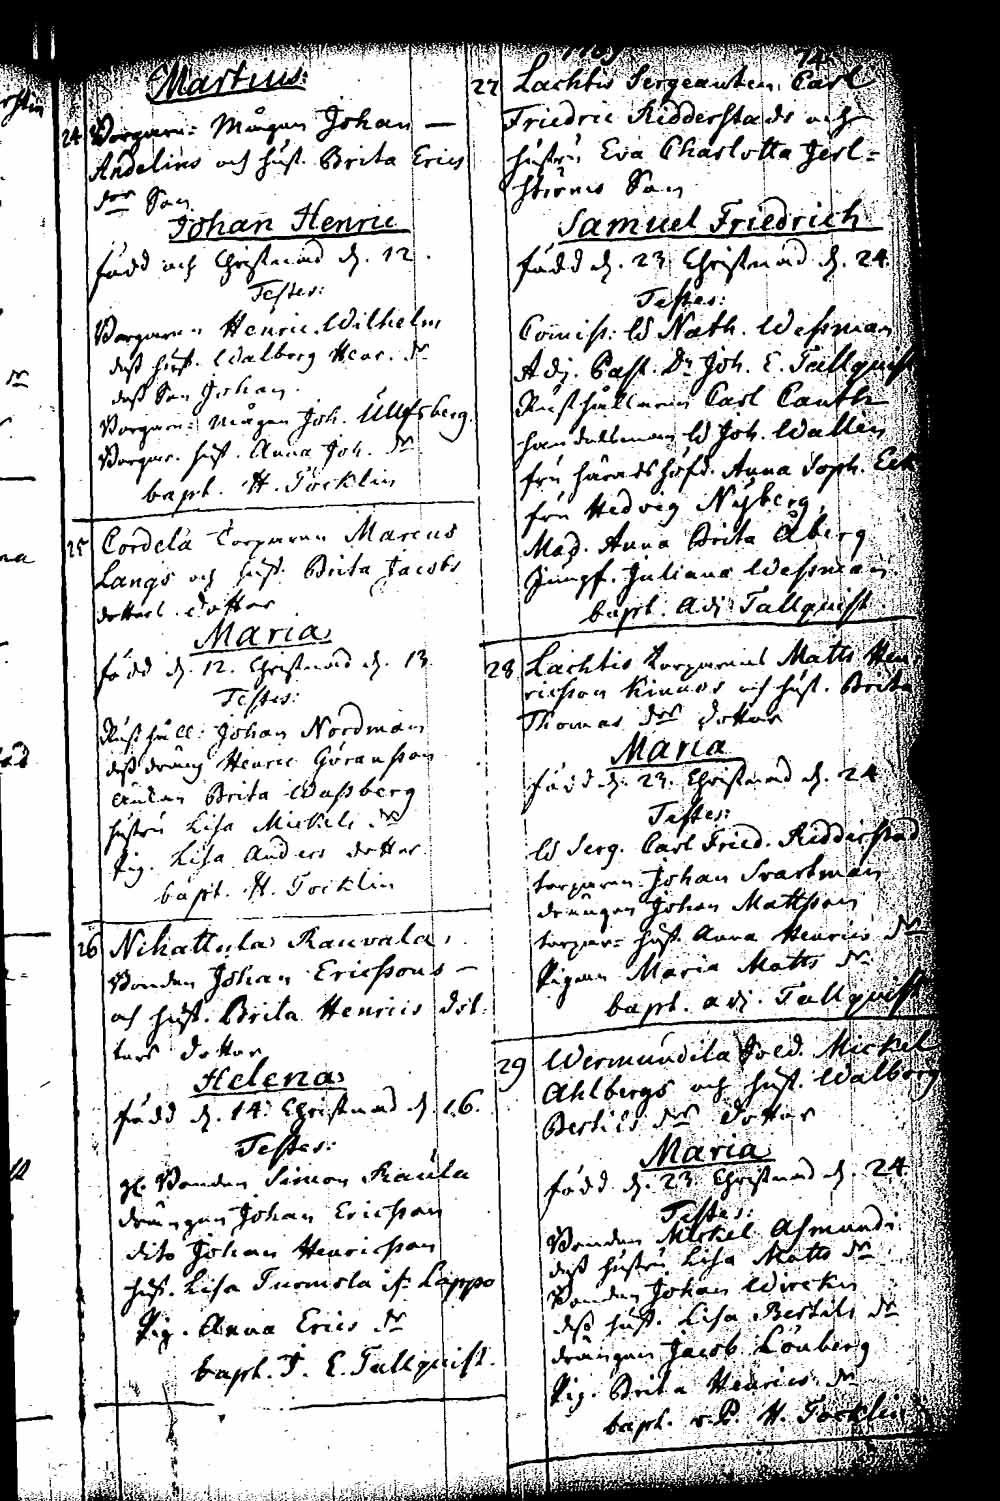 Martius:
24 Borgare: Mågen Johan —
Andelins och hust. Brita Erics
dr Son
Johan Henric
född och Christnad d. 12.
Testes:
Borgaren Henric Wilhelm
dess hust. Walborg Henr. dr
dess Son Johan.
Borgare: mågen Joh. Ullfsberg.
Borgar. hust. Anna Joh. dr
bapt. H. Tocklin
25 Cordela Torparen Marcus
Längs och hust. Brita Jacobs
dotters dotter
Maria
född d. 12. Christnad d. 13.
Testes:
Rusthåll: Johan Nordman
dess dräng Henric Göransson
Enkan Brita Wassberg
hustru Lisa Mickels dr
Pig. Lisa Anders dotter
bapt. H. Tocklin
26 Nihattula Rauvala,
Bonden Johan Ericssons —
och hust. Brita Henrics dot-
ters dotter
Helena
född d. 14. Christnad d. 16.
Testes:
gl. Bonden Simon Raula
drängen Johan Ericsson
dito Johan Henricsson
hust. Lisa Tuomola fr. Lappo
Pig. Anna Erics dr
bapt. J. E. Tallquist.
74.
27 Lachtis Sergeanten Carl
Friedric Ridderstads och
hustru Eva Charlotta Jerl-
stroms Son
Samuel Friedrich
född d. 23 Christnad d. 24.
Testes:
Comiss. W Nath. Wessman
Adj. Past. Dr Joh. E. Tallquist
Rusthållaren Carl Canth
handelsman W Joh. Wallen
fru häradshöfd. Anna Soph. Eck
fru Hedvig Nyberg
Mad. Anna Brita Åberg
Jungf. Juliana Wessman
bapt. Adj Tallquist.
28 Lachtis torparens Matts Hen
ricsson Kinnos och hust. Brita
Thomas dr dotter
Maria
född d. 23. Christnad d. 24
Testes:
W Serg. Carl Fried. Ridderstad
torparen Johan Svartman
drängen Johan Mattsson
torpar- hust. Anna Henrics dr
Pigan Maria Matts dr
bapt. adj. Tallquist
29 Wermundila Sold. Mickel
Ahlbergs och hust. Walborg
Bertils dr dotter
Maria
född d. 23 Christnad d. 24
Testes:
Bonden Mickel Asmundi
dess hustru Lisa Matts dr
Bonden Johan Wirckus
dess hust. Lisa Bertils dr
drängen Jacob Lönberg
Pig. Brita Henrics dr
bapt. v.P. H. Tocklin